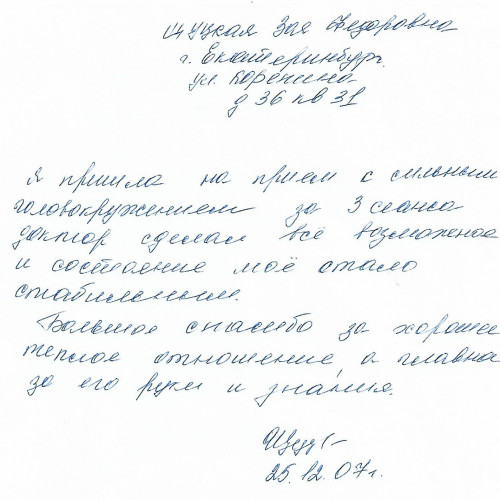 Щуцкая Зоя Федоровна
г. Екатеринбург.
ул. Корепина
д 36 кв 31
Я пришла на прием с сильным
головокружением за 3 сеанса
доктор сделал всё возможное
и состояние моё стало
стабильным.
Большое спасибо за хорошее
теплое отношение, а главное
за его руки и знания.
25.12.07г.